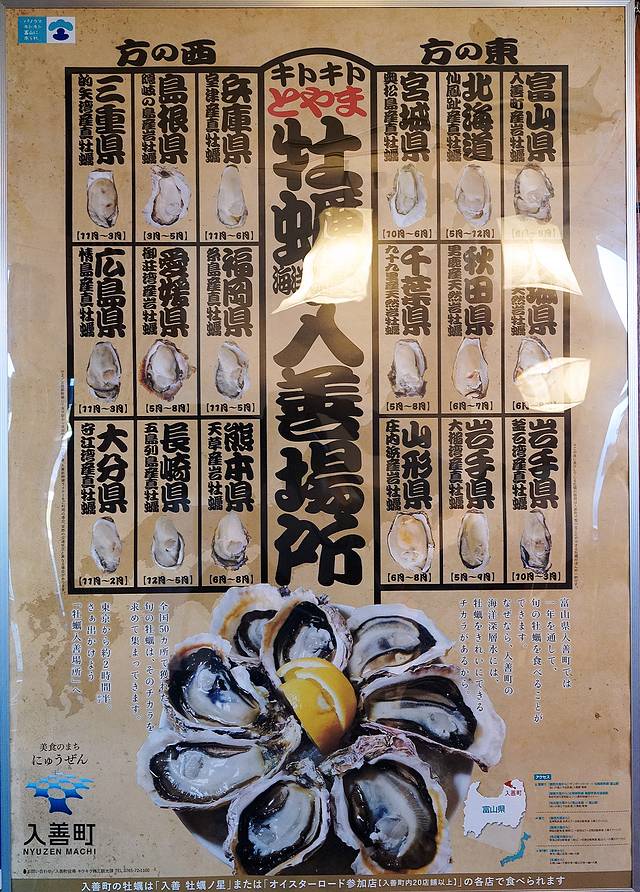 東の方
西の方
キトキト
とやま
牡蠣
入善場所
富山県
入善町産岩牡蠣
北海道
仙鳳趾産直牡蠣
[5月~12月]
宮城県
奥松島産直牡蠣
秋田県
男鹿産天然岩牡蠣
[6月~7月]
千葉県
九十九里産天然岩牡蠣
[5月~8月]
岩手県
釜石湾産岩牡蠣
[10月~3月]
岩手県
大槌湾産岩牡蠣
[5月~9月]
山形県
庄内浜産岩牡蠣
[6月~8月]
兵庫県
室津産直牡蠣
[11月~6月]
島根県
隠岐の島産岩牡蠣
[3月~5月]
三重県
的矢湾産直牡蠣
[11月~3月]
福岡県
糸島産直牡蠣
[11月~5月]
愛媛県
御荘湾産岩牡蠣
[5月~8月]
広島県
情島産直牡蠣
[11月~3月]
熊本県
天草産岩牡蠣
[6月~8月]
長崎県
五島列島産直牡蠣
[12月~5月]
大分県
守江湾産直牡蠣
[11月~2月]
富山県入善町では
一年を通して、
旬の牡蠣を食べることが
できます。
なぜなら、入善町の
海洋深層水には、
牡蠣をきれいにできる
チカラがあるから。
全国50カ所で獲れた
旬の牡蠣は、そのチカラを
求めて集まってきます。
東京から約2時間半。
さあ出かけよう
「牡蠣入善場所」へ。
美食のまち
にゅうぜん
入善町
NYUZEN MACHI
アクセス
入善町
富山県
入善町の牡蠣は「入善 牡蠣ノ星」または「オイスターロード参加店【入善町内20店舗以上】」の各店で食べられます